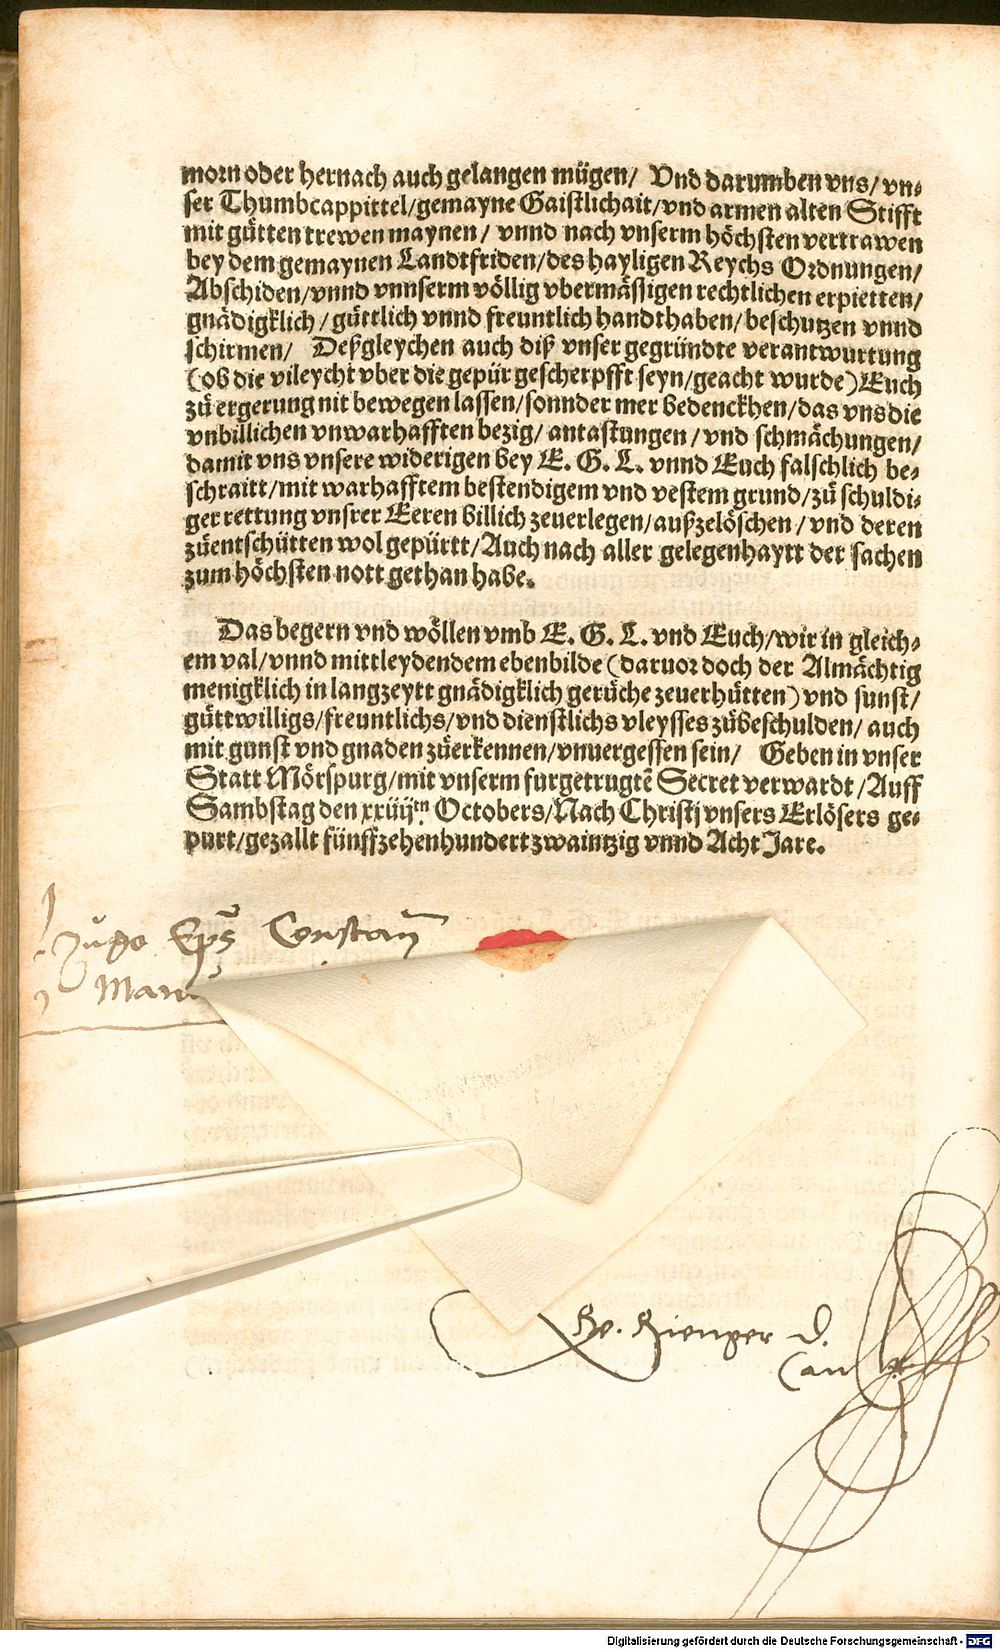 morn oder hernach auch gelangen mügen/ Vnd darumben vns/ vn⸗
ser Thumbcappittel/gemayne Gaistlichait/vnd armen alten Stifft
mit gütten trewen maynen/ vnnd nach vnserm höchsten vertrawen
bey dem gemaynen Landtfriden/des hayligen Reychs Ordnungen/
Abschiden/vnnd vnnserm völlig vbermässigen rechtlichen erpietten/
gnädigklich/güttlich vnnd freuntlich handthaben/beschutzen vnnd
schirmen/ Deßgleychen auch diß vnser gegründte verantwurtung
(ob die vileycht vber die gepür gescherpfft seyn/geacht wurde) Euch
zü ergerung nit bewegen lassen/sonnder mer bedenckhen/das vns die
vnbillichen vnwarhafften bezig/ antastungen/vnd schmächungen/
damit vns vnsere widerigen bey E. G. L. vnnd Euch falschlich be⸗
schraitt/mit warhafftem bestendigem vnd vestem grund/zü schuldi⸗
ger rettung vnsrer Eeren billich zeuerlegen/außzelöschen/vnd deren
züentschütten wol gepürtt/Auch nach aller gelegenhaytt der sachen
zum höchsten nott gethan habe.
Das begern vnd wöllen vmb E. G. L. vnd Euch/wir in gleich⸗
em val/vnnd mittleydendem ebenbilde (daruor doch der Almächtig
menigklich in langzeytt gnädigklich gerüche zeuerhütten) vnd sunst/
güttwilligs/freuntlichs/vnd dienstlichs vleysses zübeschulden/ auch
mit gunst vnd gnaden züerkennen/vnuergessen sein/ Geben in vnser
Statt Mörspurg/mit vnserm furgetrugtē Secret verwardt/Auff
Sambstag den xxiiijtn. Octobers/Nach Christj vnsers Erlösers ge⸗
purt/gezallt fünffzehenhundert zwaintzig vnnd Acht Jare.
Hugo Eps Constan
Man
Rienger D.
Can
Digitalisierung gefördert durch die Deutsche Forschungsgemeinschaft - DFG